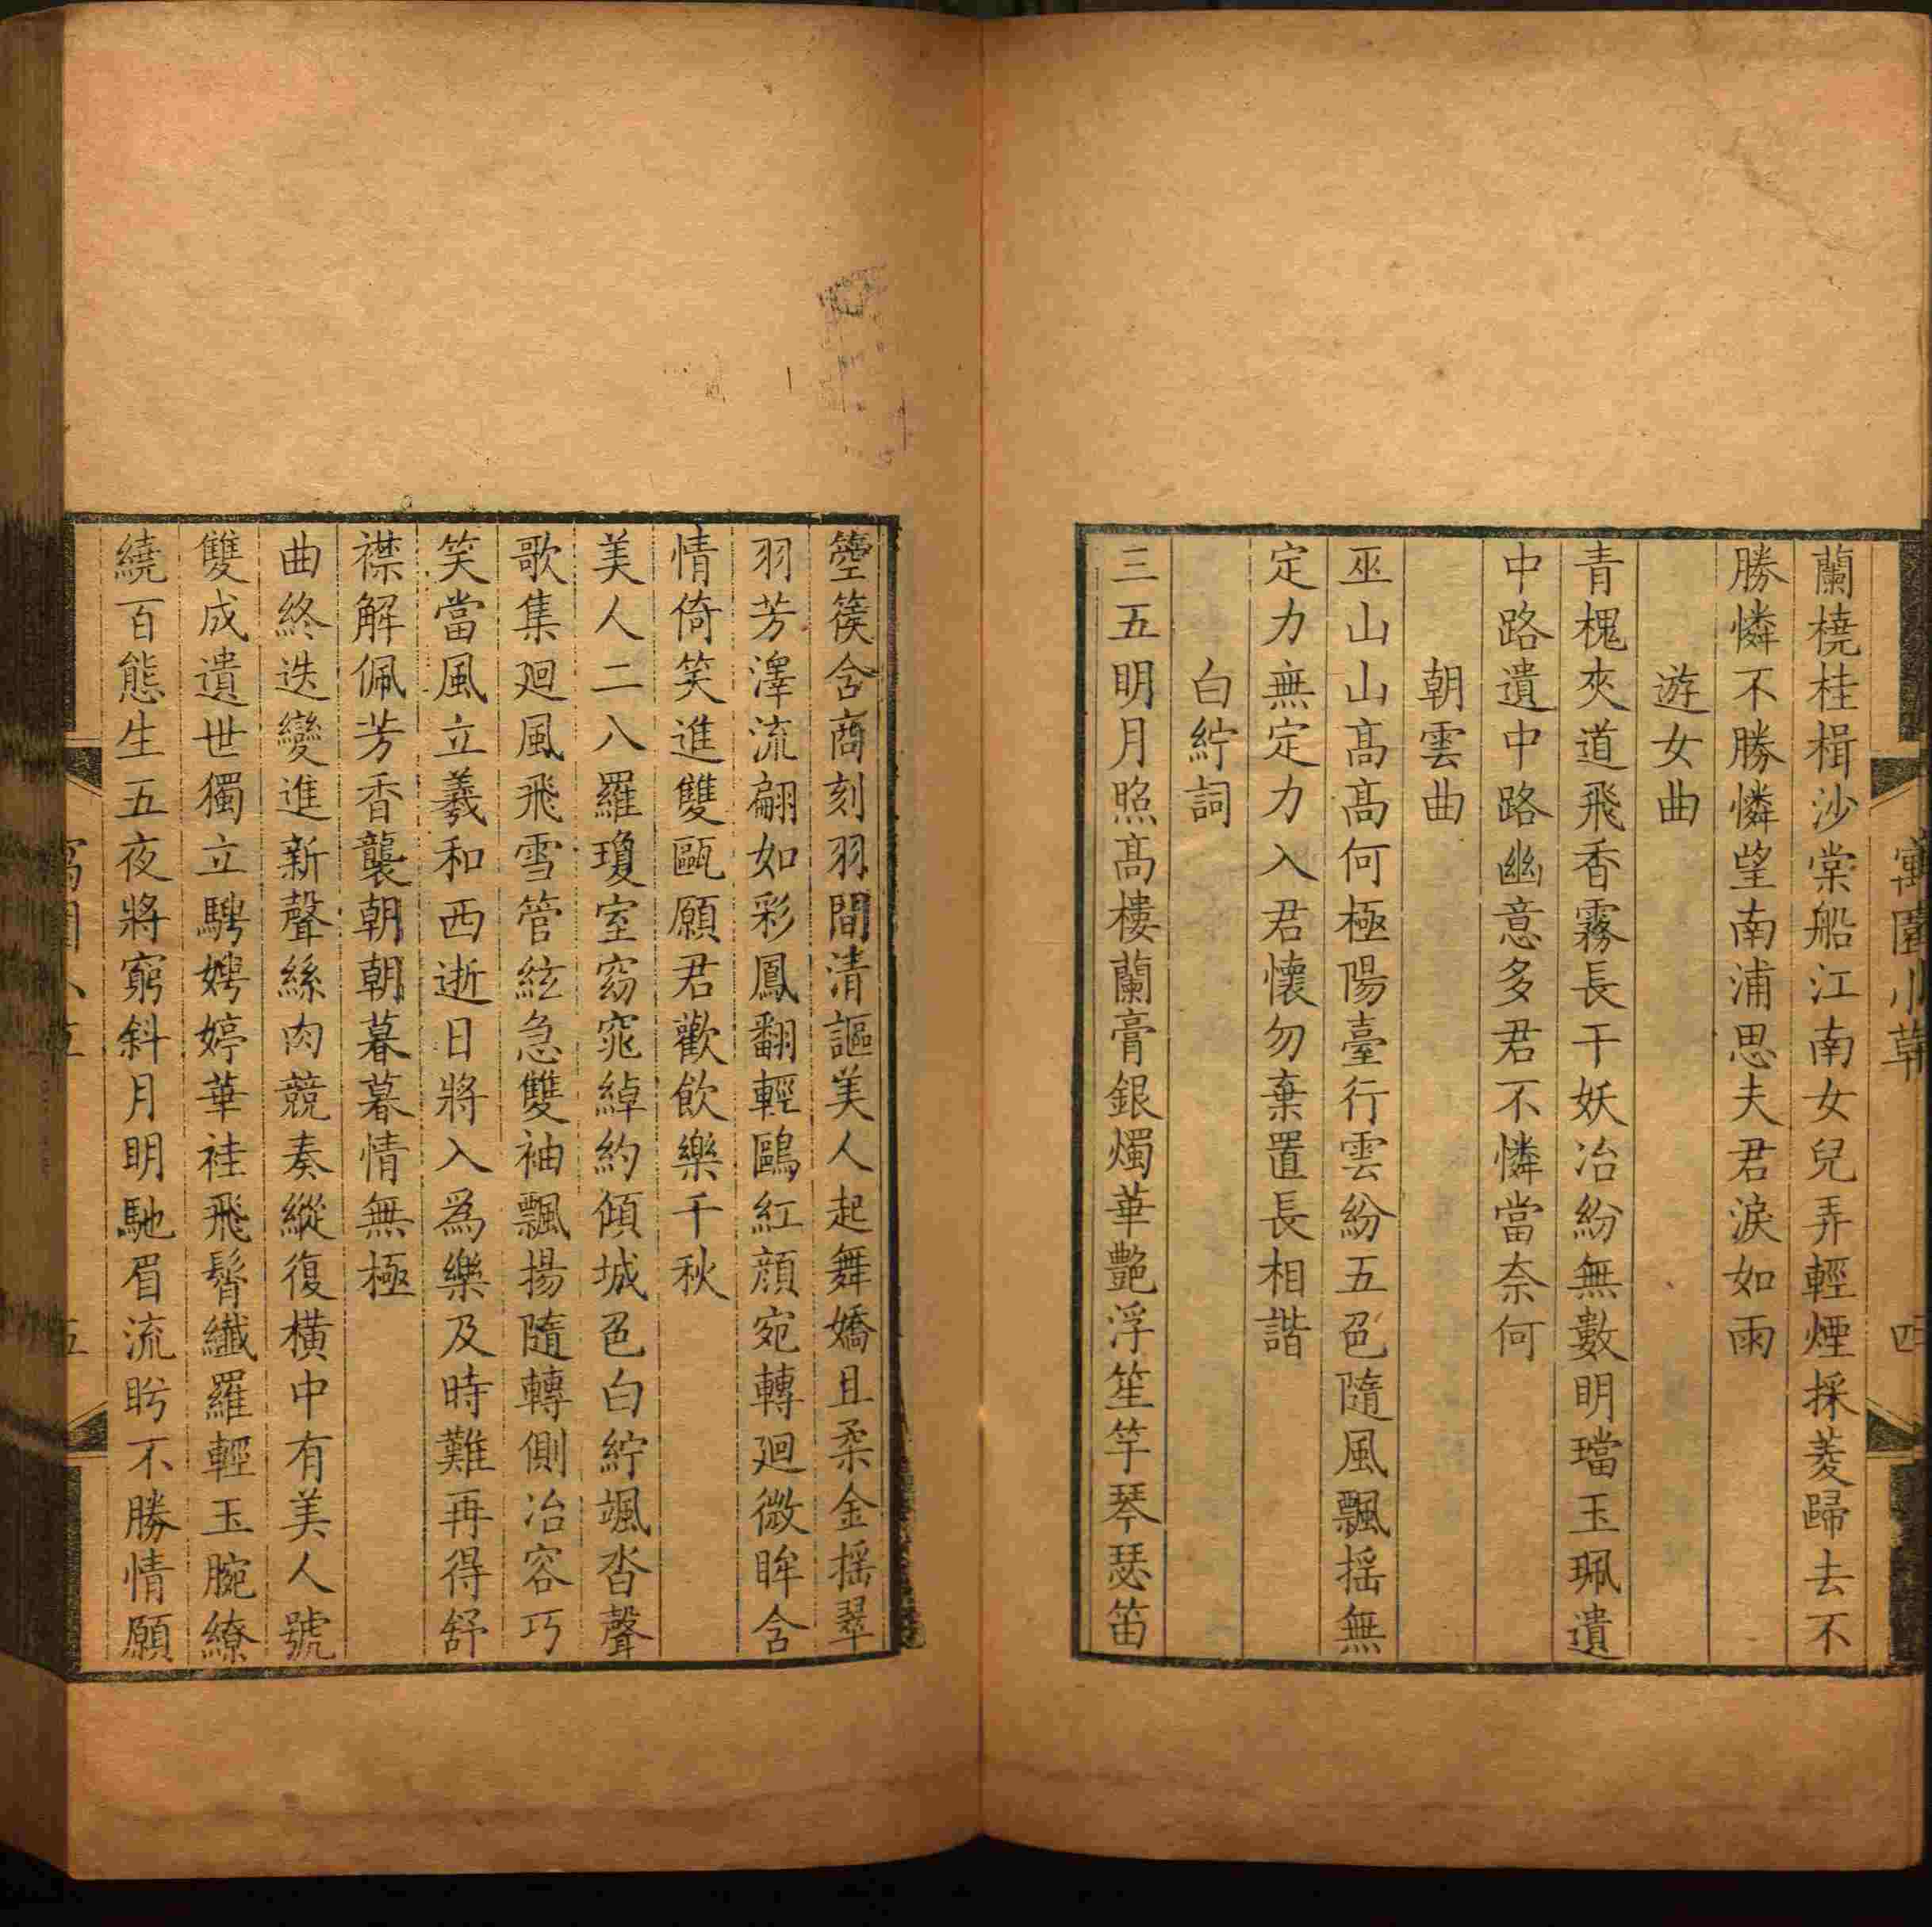 寓園小草
四
蘭橈桂楫沙棠船江南女兒弄輕煙採菱歸去不
勝憐不勝憐望南浦思夫君淚如雨
遊女曲
青槐夾道飛香霧長干妖冶紛無數明璫玉珮遺
中路遺中路幽意多君不憐當奈何
朝雲曲
巫山山高高何極陽臺行雲紛五色隨風飄揺無
定力無定力入君懷勿棄置長相諧
白紵詞
三五明月照高樓蘭膏銀燭華艷浮笙竽琴瑟笛
箜篌含商刻羽間清謳美人起舞嬌且柔金揺翠
羽芳澤流翩如彩鳳翻輕鷗紅顔宛轉廻微眸含
情倚笑進雙甌願君歡飲樂千秋
美人二八羅瓊室窈窕綽約傾城色白紵颯沓聲
歌集廻風飛雪管絃急雙袖飄揚隨轉側冶容巧
笑當風立羲和西逝日將入爲樂及時難再得舒
襟解佩芳香襲朝朝暮暮情無極
曲終迭變進新聲絲肉競奏縱復橫中有美人號
雙成遺世獨立騁娉婷華袿飛髾纖羅輕玉腕繚
繞百態生五夜將窮斜月明馳眉流眄不勝情願
五